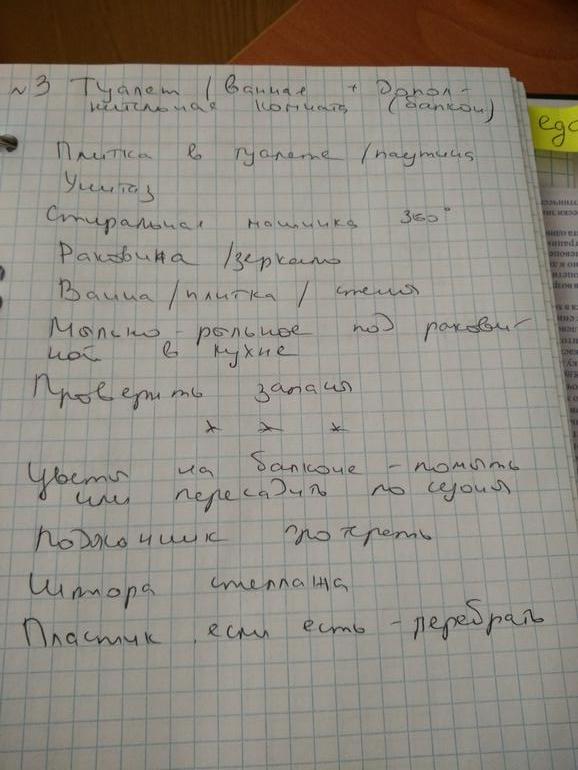 №3 Туалет / ванная + Допол-
нительная комната (балкон)
едо
Плитка в туалете / паутина
Унитаз
Стиральная машинка 360°
Раковина / зеркало
Ванна / плитка / стена
Мыльно-рыльное под ракови-
ной в кухне
Проверить запасы
* * *
Цветы на балконе - помыть
или пересадить по сезону
Подоконник протереть
Штора стеллажа
Пластик, если есть - перебрать